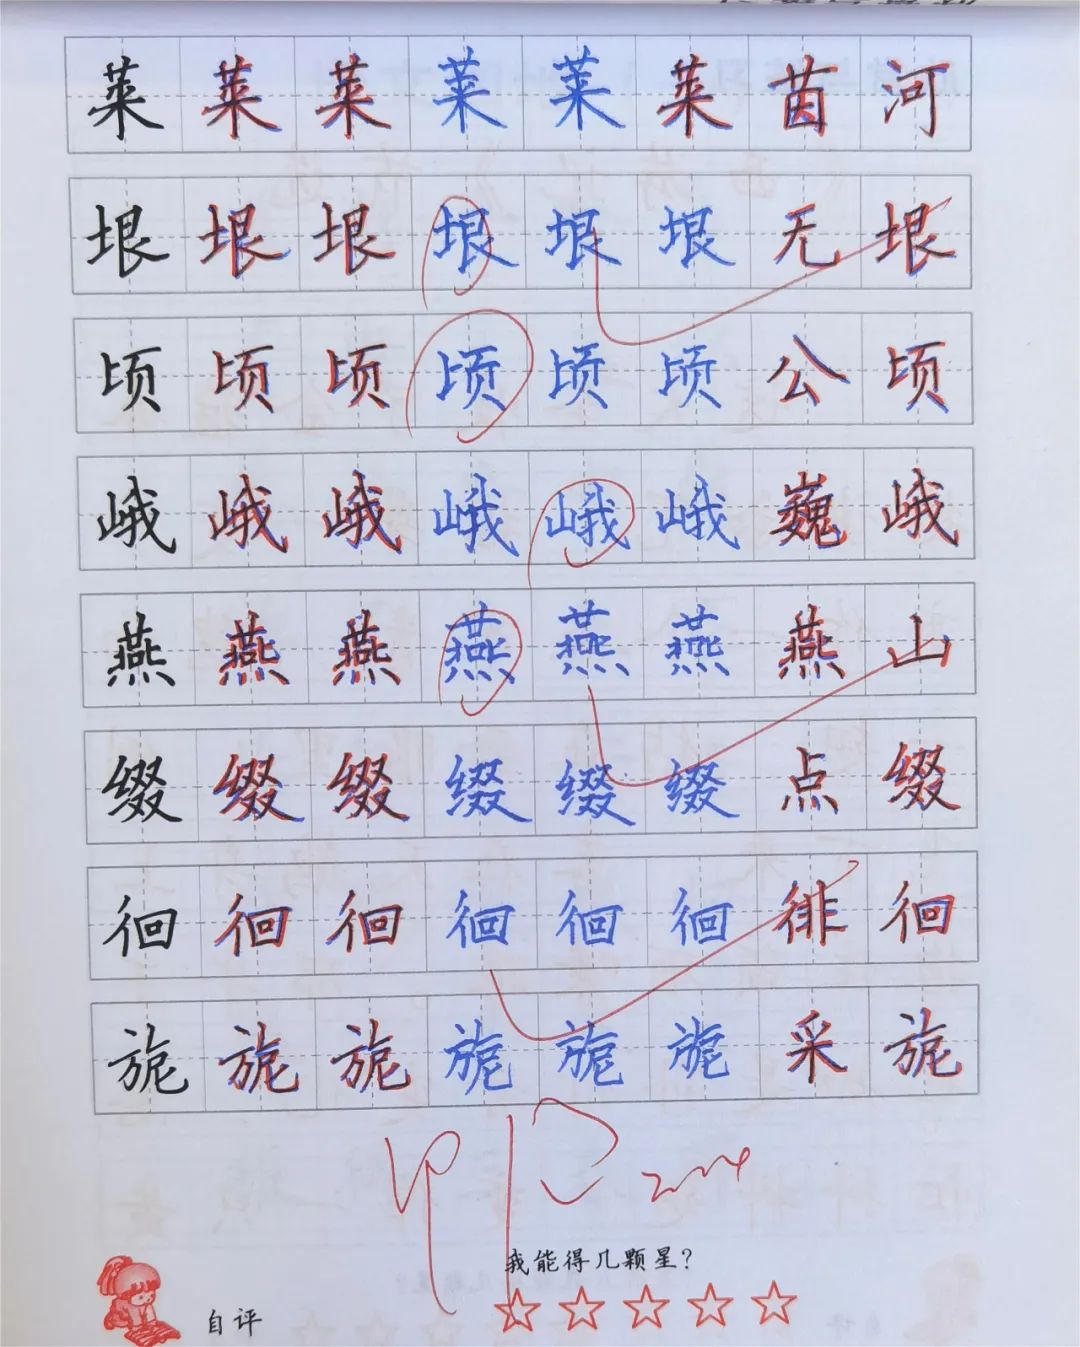 莱莱莱莱莱莱茵河
垠垠垠垠垠垠无垠
顷顷顷顷顷顷公顷
峨峨峨峨峨峨巍峨
燕燕燕燕燕燕燕山
缀缀缀缀缀缀点缀
徊徊徊徊徊徊徘徊
旎旎旎旎旎旎采旎
我能得几颗星?
自评